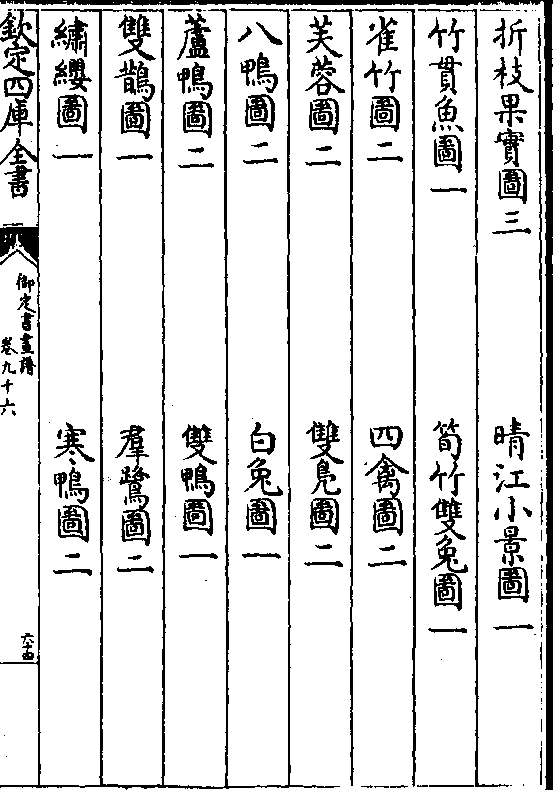 折枝果實圖三　晴江小景圖一
竹貫魚圖一　筍竹雙兔圖一
雀竹圖二　四禽圖二
芙蓉圖二　雙鳧圖二
八鴨圖二　白兔圖一
蘆鴨圖二　雙鴨圖一
雙鵲圖一　羣鷺圖二
繡纓圖一　寒鴨圖二
欽定四庫全書　御定書畫譜　卷九十六　六十四